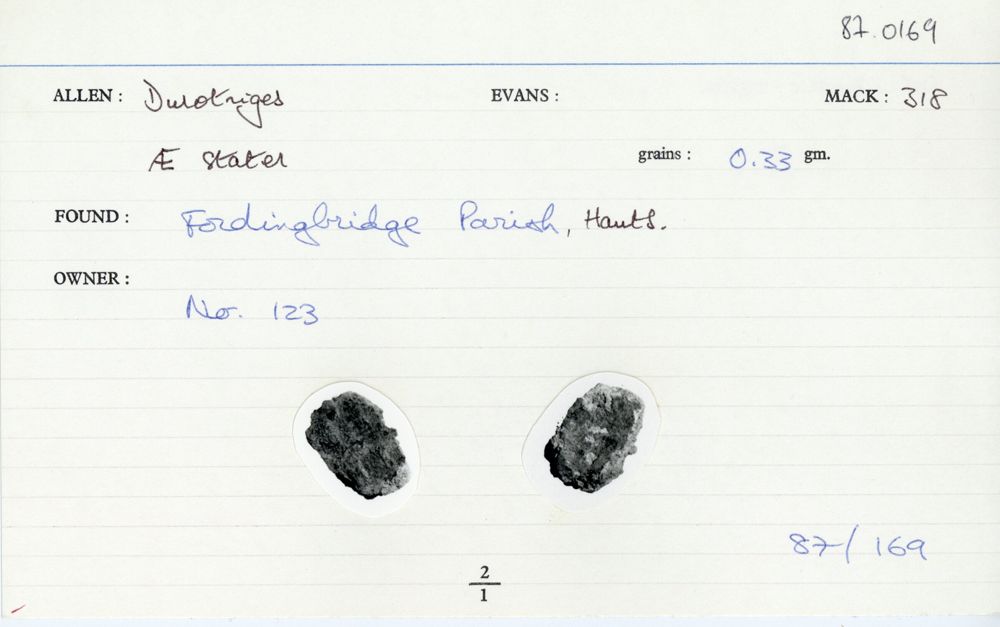 87.0169
ALLEN : Durotriges EVANS : MACK : 318
Æ stater grains : 0.33 gm.
FOUND : Fordingbridge Parish, Hants.
OWNER :
No. 123
87/169
2
1